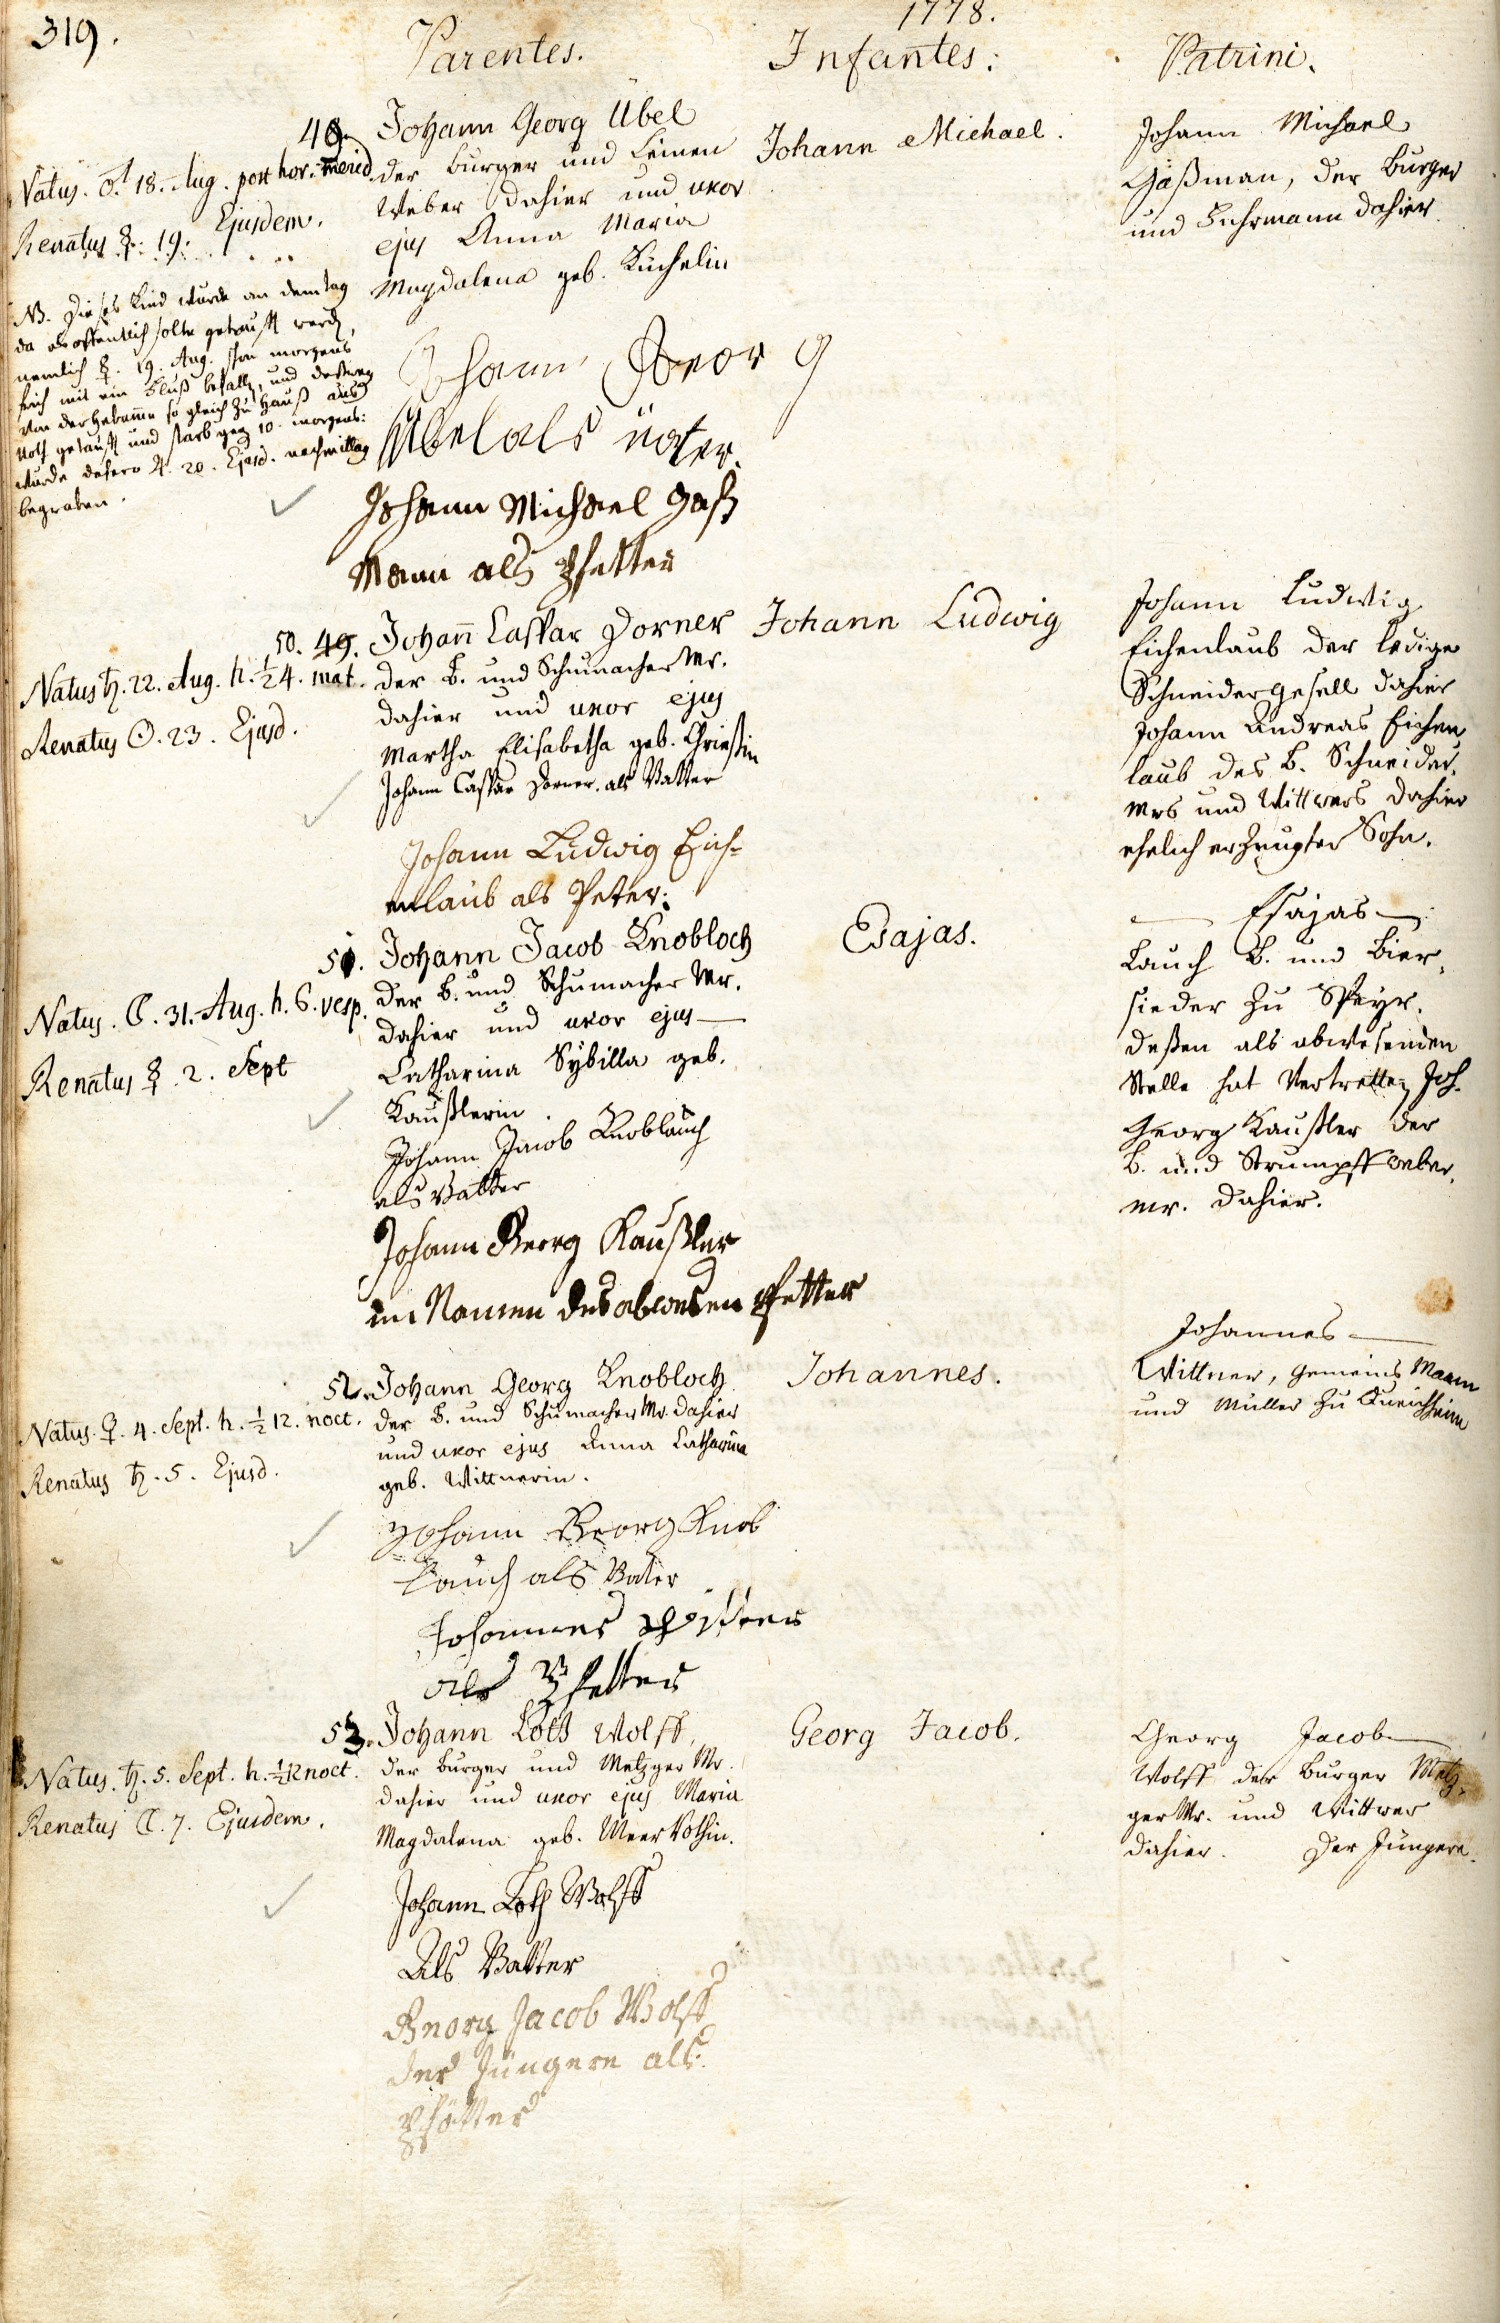 319.
1778.
Parentes. Infantes: Patrini.
49.
Natus. ♂. 18. Aug. post hor. merid.
Renatus ☿. 19. Ejusdem.
NB. Dieses Kind wurde an dem tag
da es offentlich solte getaufft werdz,
nemlich ☿. 19. Aug. schon morgens
früh mit ein Fluß befallz, und deßweg
von der Hebamme so gleich zu Hauß aus
Noth getaufft und starb geg 10. morgens:
wurde dahero ♃. 20. Ejusd. nachmittag
begraben.
Johann Georg Übel
der burger und Leinen
Weber dahier und uxor
ejus Anna Maria
Magdalena geb. Küchelin
Johann Michael.
Johann Michael
Gaßman, der burger
und Fuhrmann dahier.
Johann Georg
Übel als vater.
Johann Michael Gaß
Mann als Pfetter
50. 49.
Natus ♄. 22. Aug. h. ½ 4. mat.
Renatus ☉. 23. Ejusd.
Johann Caspar Dorner
der B. und Schumacher Mr.
dahier und uxor ejus
Martha Elisabetha geb. Christin
Johann Caspar Dorner. als Vatter
Johann Ludwig Eich-
enlaub als Peter:
Johann Ludwig
Johann Ludwig
Eichenlaub der ledige
Schneidergesell dahier
Johann Andreas Eichen
laub des B. Schneider,
Mrs und Wittwers dahier
ehelich erzeugter Sohn.
51.
Natus. ☾. 31. Aug. h. 6. vesp.
Renatus ☿. 2. Sept
Johann Jacob Knobloch
der B. und Schumacher Mr.
dahier und uxor ejus
Catharina Sybilla geb.
Kaußlerin.
Johann Jacob Knoblauch
als Vatter
Johann Georg Kaußler
im Namen des abwesen Pfetter
Esajas.
Esajas
Lauch B. und Bier,
sieder zu Speyr.
deßen als abwesenden
Stelle hat Vertrettz Joh.
Georg Kaußler der
B. und Strumpff weber,
mr. dahier.
52.
Natus. ♀. 4. Sept. h. ½ 12. noct.
Renatus ♄. 5. Ejusd.
Johann Georg Knobloch
der B. und Schumacher Mr. dahier
und uxor ejus Anna Catharina
geb. Wittnerin.
Johann Georg Knob
lauch als Vater
Johannes
als Pfetter
Johannes.
Johannes
Wittner, Gemeins Mann
und Müller zu
53.
Natus. ♄. 5. Sept. h. ½ 12 noct.
Renatus ☾. 7. Ejusdem.
Johann Loth Wolff,
der burger und Metzger Mr.
dahier und uxor ejus Maria
Magdalena geb. Meer Vothin.
Johann Loth Wolff
Als Vatter
Georg Jacob Wolff
der Jüngere als
Pfötter
Georg Jacob.
Georg Jacob
Wolff der burger Metz,
ger Mr. und Wittwer
dahier. der Jüngere.